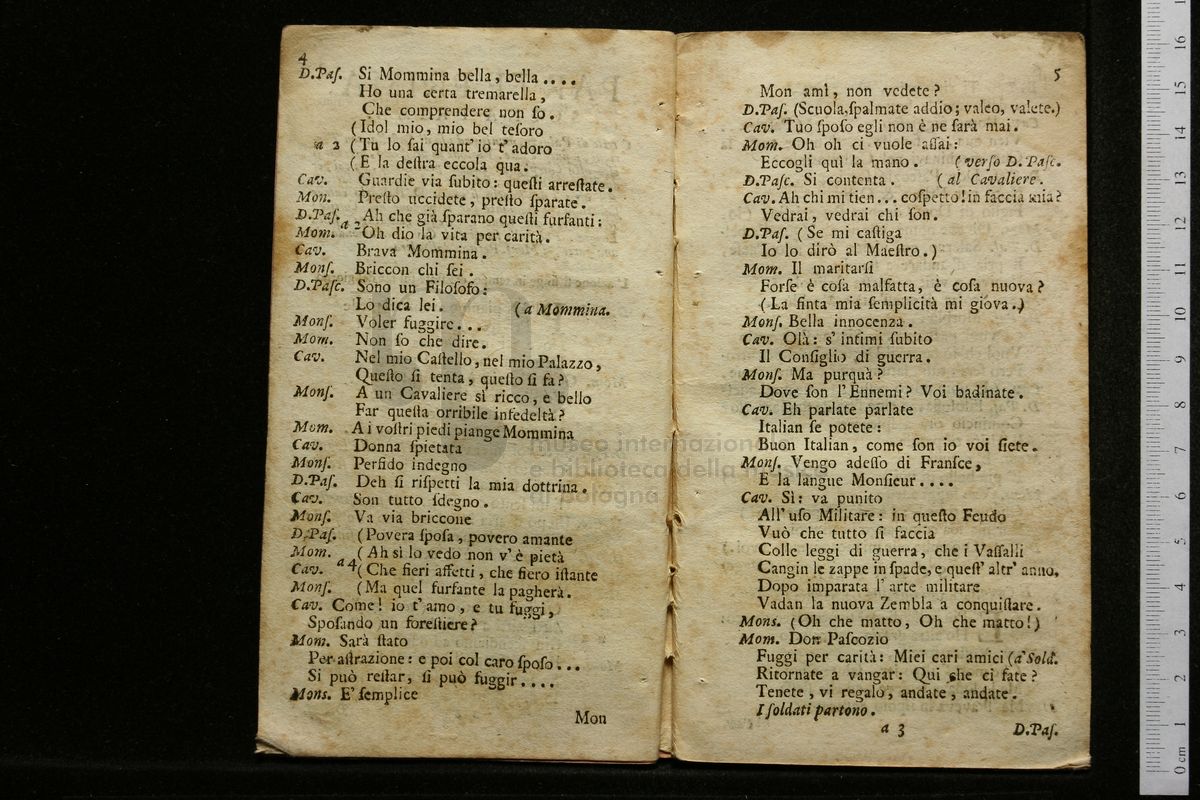 4
D.Paſ. Si Mommina bella, bella ....
Ho una certa tremarella,
Che comprendere non ſo.
(Idol mio, mio bel teſoro
a 2 (Tu lo ſai quant' io t' adoro
(E la deſtra eccola qua.
Cav. Guardie via ſubito: queſti arreſtate.
Mon. Preſto uccidete, preſto ſparate.
D.Paſ. Ah che già ſparano queſti furfanti:
a 2
Mom. Oh dio la vita per carità.
Cav. Brava Mommina.
Monſ. Briccon chi ſei.
D.Paſc. Sono un Filoſofo:
Lo dica lei. (a Mommina.
Monſ. Voler fuggire...
Mom. Non ſo che dire.
Cav. Nel mio Caſtello, nel mio Palazzo,
Queſto ſi tenta, queſto ſi fa?
Monſ. A un Cavaliere sì ricco, e bello
Far queſta orribile infedeltà?
Mom. A i voſtri piedi piange Mommina
Cav. Donna ſpietata
Monſ. Perfido indegno
D.Paſ. Deh ſi riſpetti la mia dottrina.
Cav. Son tutto ſdegno.
Monſ. Va via briccone
D.Paſ. (Povera ſpoſa, povero amante
Mom. (Ah sì lo vedo non v' è pietà
Cav. a 4 (Che fieri affetti, che fiero iſtante
Monſ. (Ma quel furfante la pagherà.
Cav. Come! io t' amo, e tu fuggi,
Spoſando un foreſtiere?
Mom. Sarà ſtato
Per aſtrazione: e poi col caro ſpoſo...
Si può reſtar, ſi può fuggir....
Mons. E' ſemplice
Mon
5
Mon ami, non vedete?
D.Paſ. (Scuola, ſpalmate addio; valeo, valete.)
Cav. Tuo ſpoſo egli non è ne ſarà mai.
Mom. Oh oh ci vuole aſſai:
Eccogli quì la mano. (verſo D. Paſc.
D.Paſc. Si contenta. (al Cavaliere.
Cav. Ah chi mi tien... coſpetto! in faccia mia?
Vedrai, vedrai chi ſon.
D.Paſ. (Se mi caſtiga
Io lo dirò al Maeſtro.)
Mom. Il maritarſi
Forſe è coſa malfatta, è coſa nuova?
(La finta mia ſemplicità mi giova.)
Monſ. Bella innocenza.
Cav. Olà: s' intimi ſubito
Il Conſiglio di guerra.
Monſ. Ma purquà?
Dove ſon l' Ennemi? Voi badinate.
Cav. Eh parlate parlate
Italian ſe potete:
Buon Italian, come ſon io voi ſiete.
Monſ. Vengo adeſſo di Franſce,
E la langue Monſieur....
Cav. Sì: va punito
All' uſo Militare: in queſto Feudo
Vuò che tutto ſi faccia
Colle leggi di guerra, che i Vaſſalli
Cangin le zappe in ſpade, e queſt' altr' anno,
Dopo imparata l' arte militare
Vadan la nuova Zembla a conquiſtare.
Mons. (Oh che matto, Oh che matto!)
Mom. Don Paſcozio
Fuggi per carità: Miei cari amici (a' Sold.
Ritornate a vangar: Qui che ci fate?
Tenete, vi regalo, andate, andate.
I ſoldati partono.
a 3 D.Paſ.
museo internazionale
e biblioteca della musica
di Bologna
0 cm 1 2 3 4 5 6 7 8 9 10 11 12 13 14 15 16